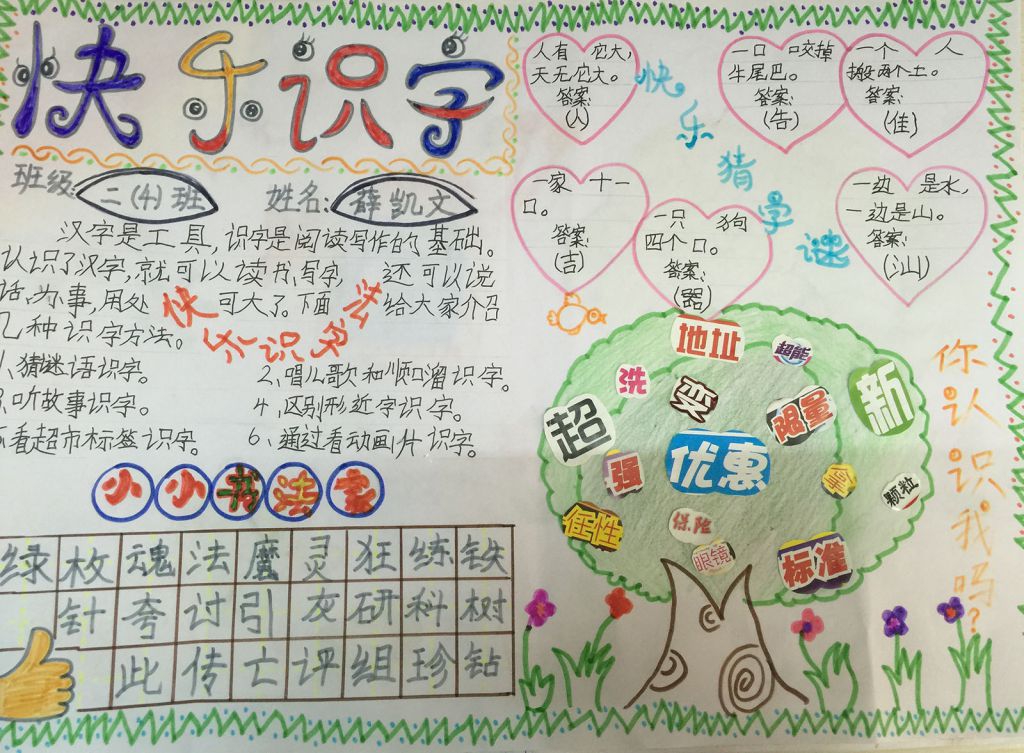 快乐识字
班级: 二(4)班 姓名: 薛凯文
汉字是工具,识字是阅读写作的基础。
认识了汉字,就可以读书,写字, 还可以说
话,办事,用处可大了。下面给大家介绍
几种识字方法。
快乐识字法
1、猜谜语识字。 2、唱儿歌和顺口溜识字。
3、听故事识字。 4、区别形近字识字。
5、看超市标签识字。 6、通过看动画片识字。
小小书法家
绿 枚 魂 法 魔 灵 狂 练 铁
针 夸 过 引 灰 研 科 树
此 传 亡 评 组 珍 钻
快乐猜字谜
人有 它大,
天无它大。
答案:
(人)
一口 口咬掉
牛尾巴。
答案:
(告)
一个 人
搬两个土。
答案:
(佳)
一家 十一
口。
答案:
(吉)
一只 狗
四个口。
答案:
(器)
一边 是水,
一边是山。
答案:
(汕)
地址
超能
洗
变
限量
新
超
强
优惠
颗粒
个性
保险
眼镜
标准
你认识我吗?